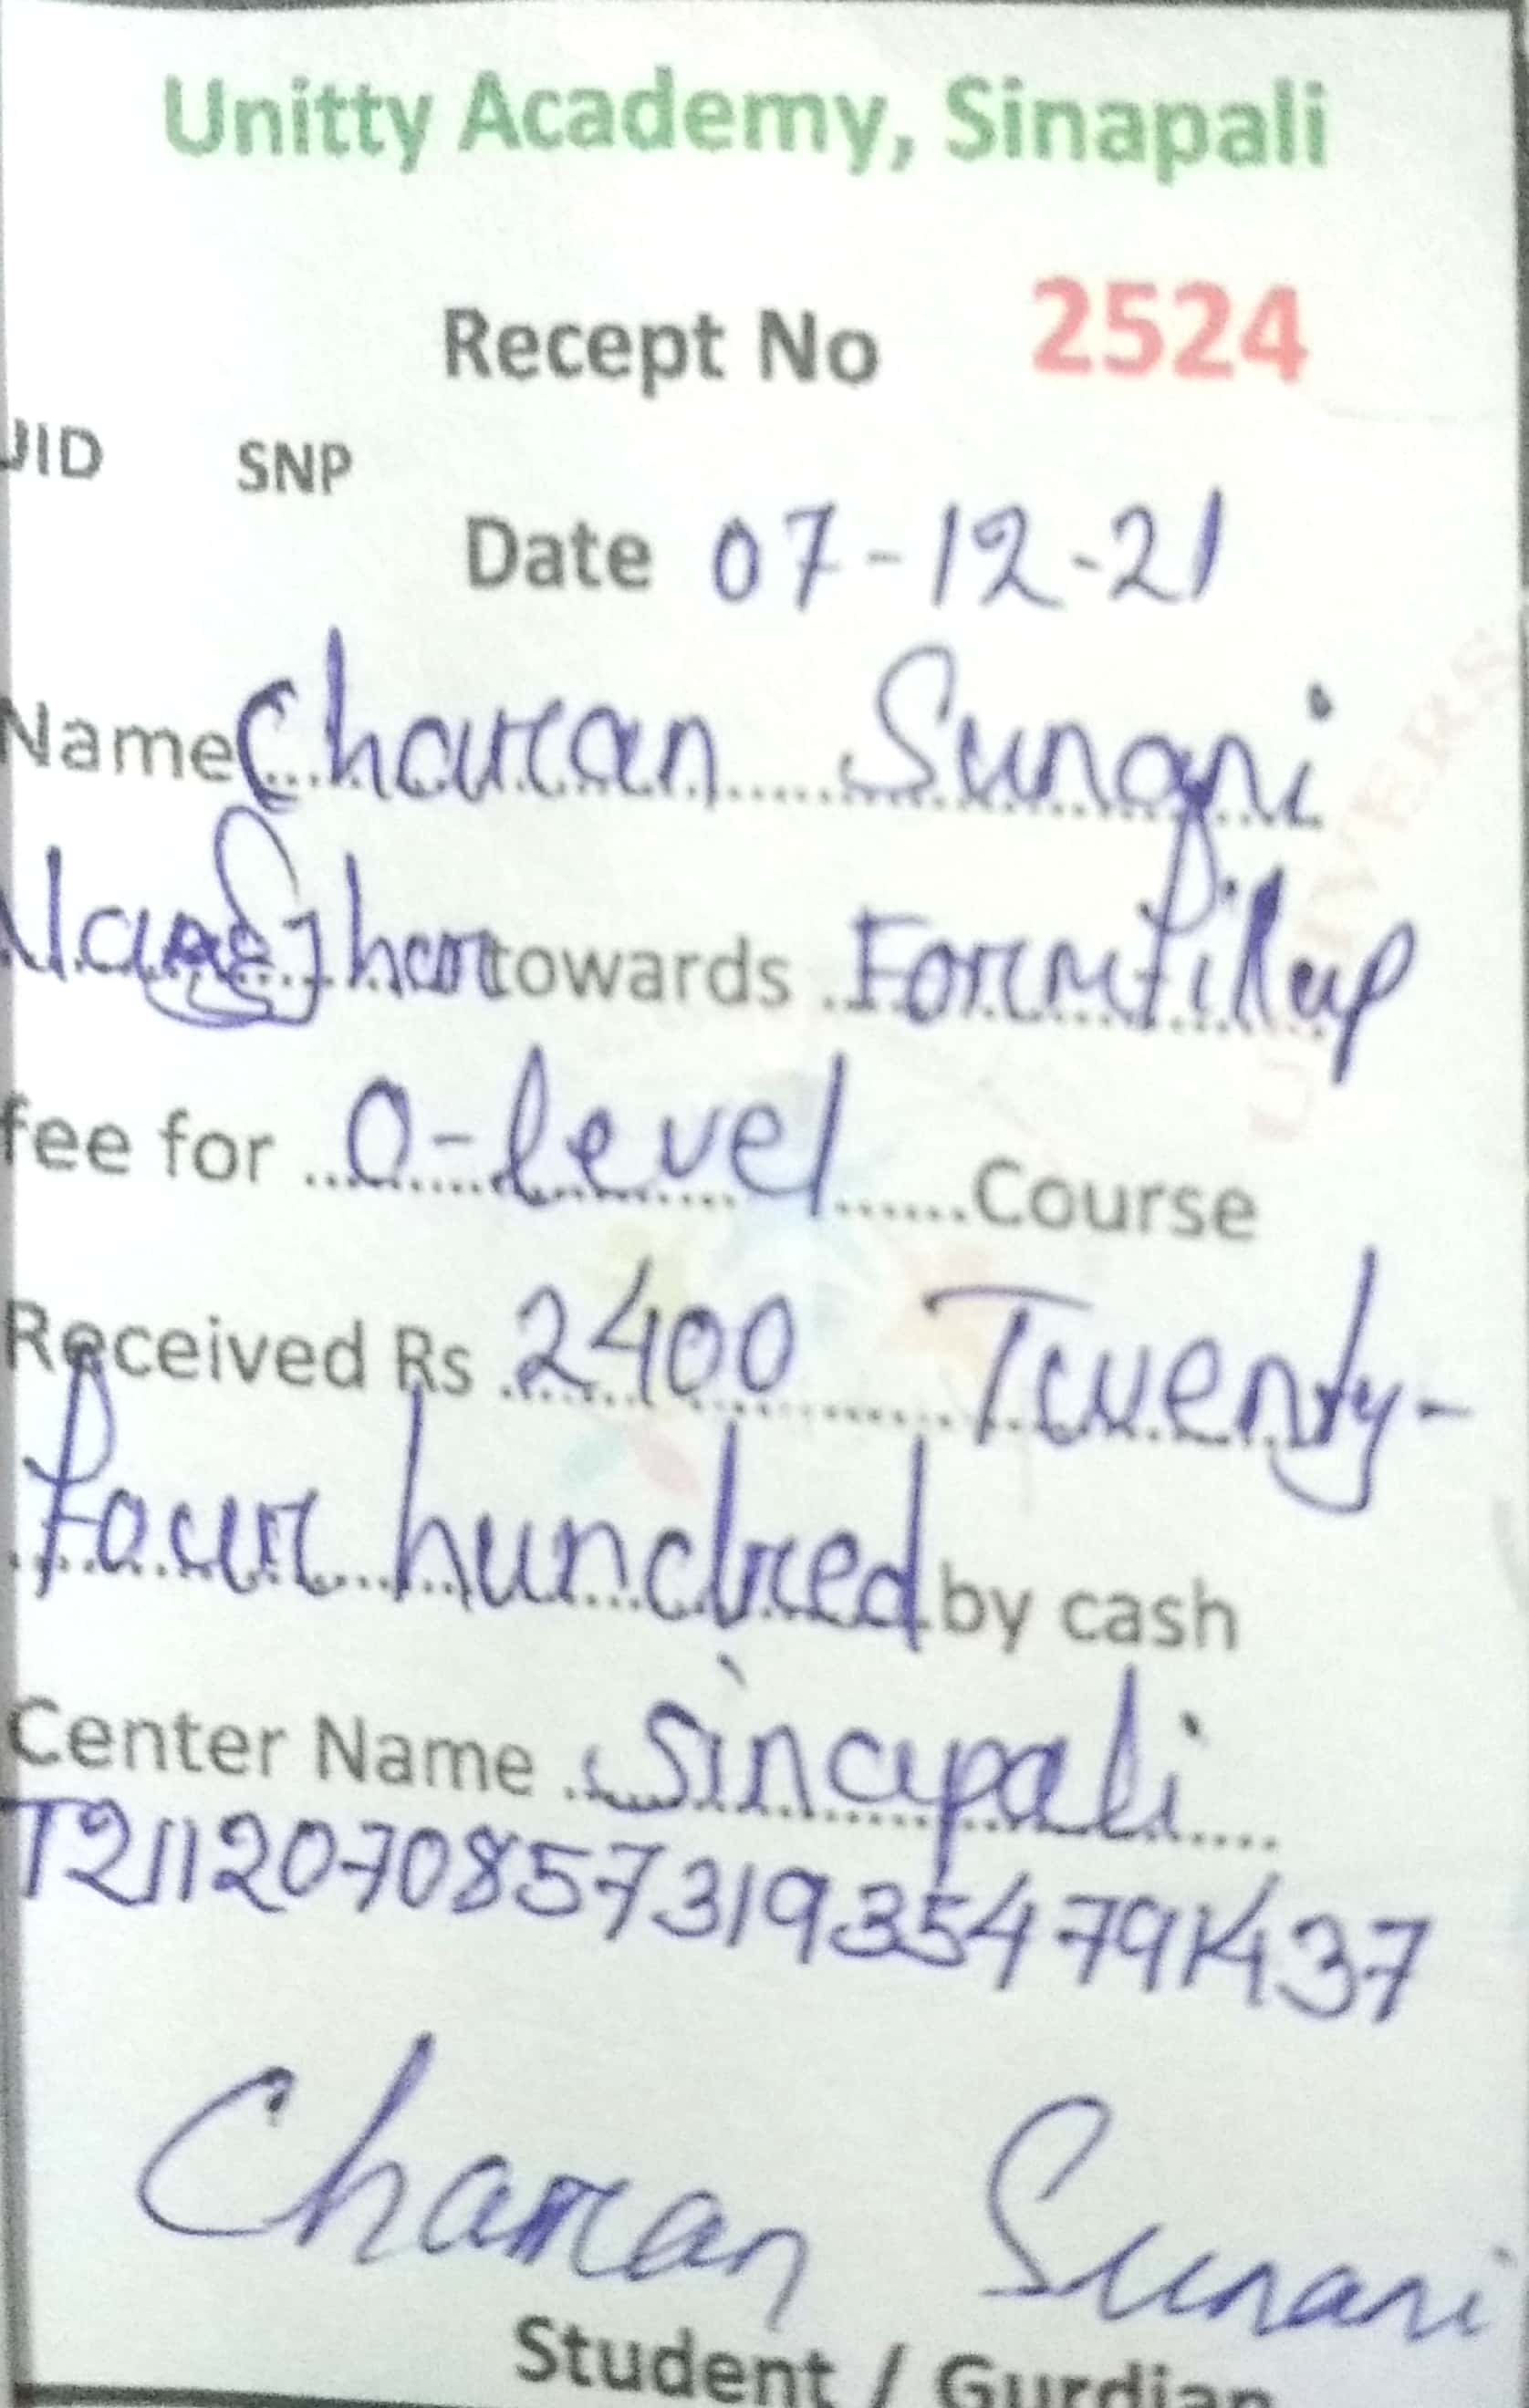 Unitty Academy, Sinapali
Recept No 2524
UID SNP
Date 07-12-21
Name Charan Sunani
towards Formfillup
fee for O-level Course
Received Rs 2400 Twenty-
four hundred by cash
Center Name Sinapali
T2112070857319354791437
Charan Sunani
Student / Gurdian